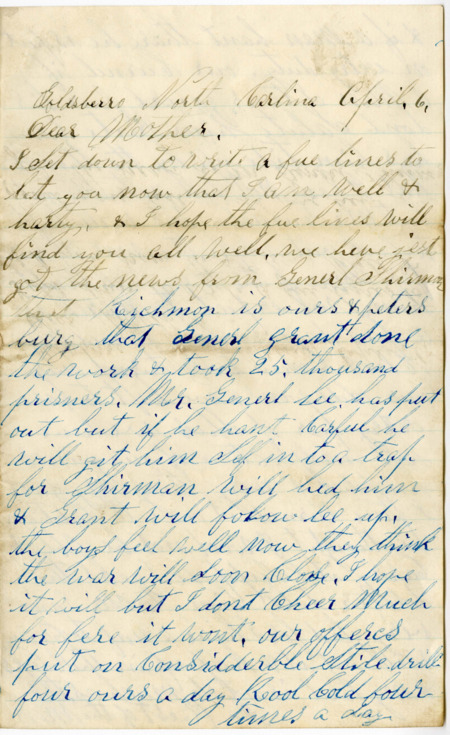 Golesberro North Carlina April, 6,
Dear Mother.
I set down to write a fue lines to
let you now that I am well &
harty, & I hope the fue lines will
find you all well, we heve jest
got the news from Generl Shirmon
that Richmon is ours & peters
burg that Generl grant done
the work & took 25. thousand
prisners. Mr. Generl lee has put
out but if he hant Carful he
will git him Self in to a trap
for Shirman will hed him
& Grant will folow lee up.
the boys feel well now they think
the war will soon Close, I hope
it will but I dont Cheer Much
for fere it wont, our offeres
put on Considderble stile drill
four ours a day Rool Cold four
times a day